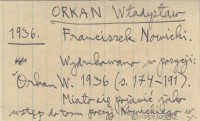 ORKAN Władysław
1936. Franciszek Nowicki.
Wydrukowano w pozycji:
Orkan W. 1936 (s. 174-191).
Miało się pojawić jako
wstęp do tom poezji Nowickiego w